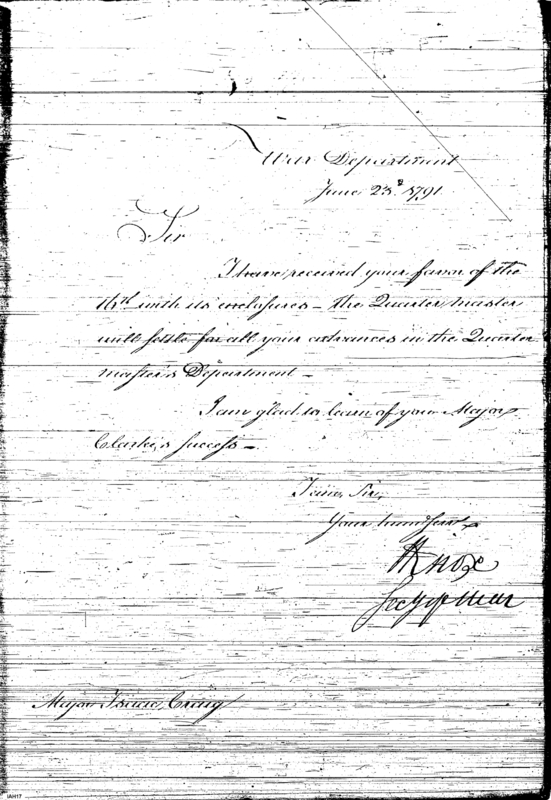 War Department
June 23d 1791
Sir
I have received your favor of the
16th with its enclosures – the Quarter master
will settle for all your advances in the Quarter
master's Department –
I am glad to learn of your Major
Clarke's success –
I am, Sir,
Your humble Servt
HKnox
Secy of War
Major Isaac Craig
IAH17